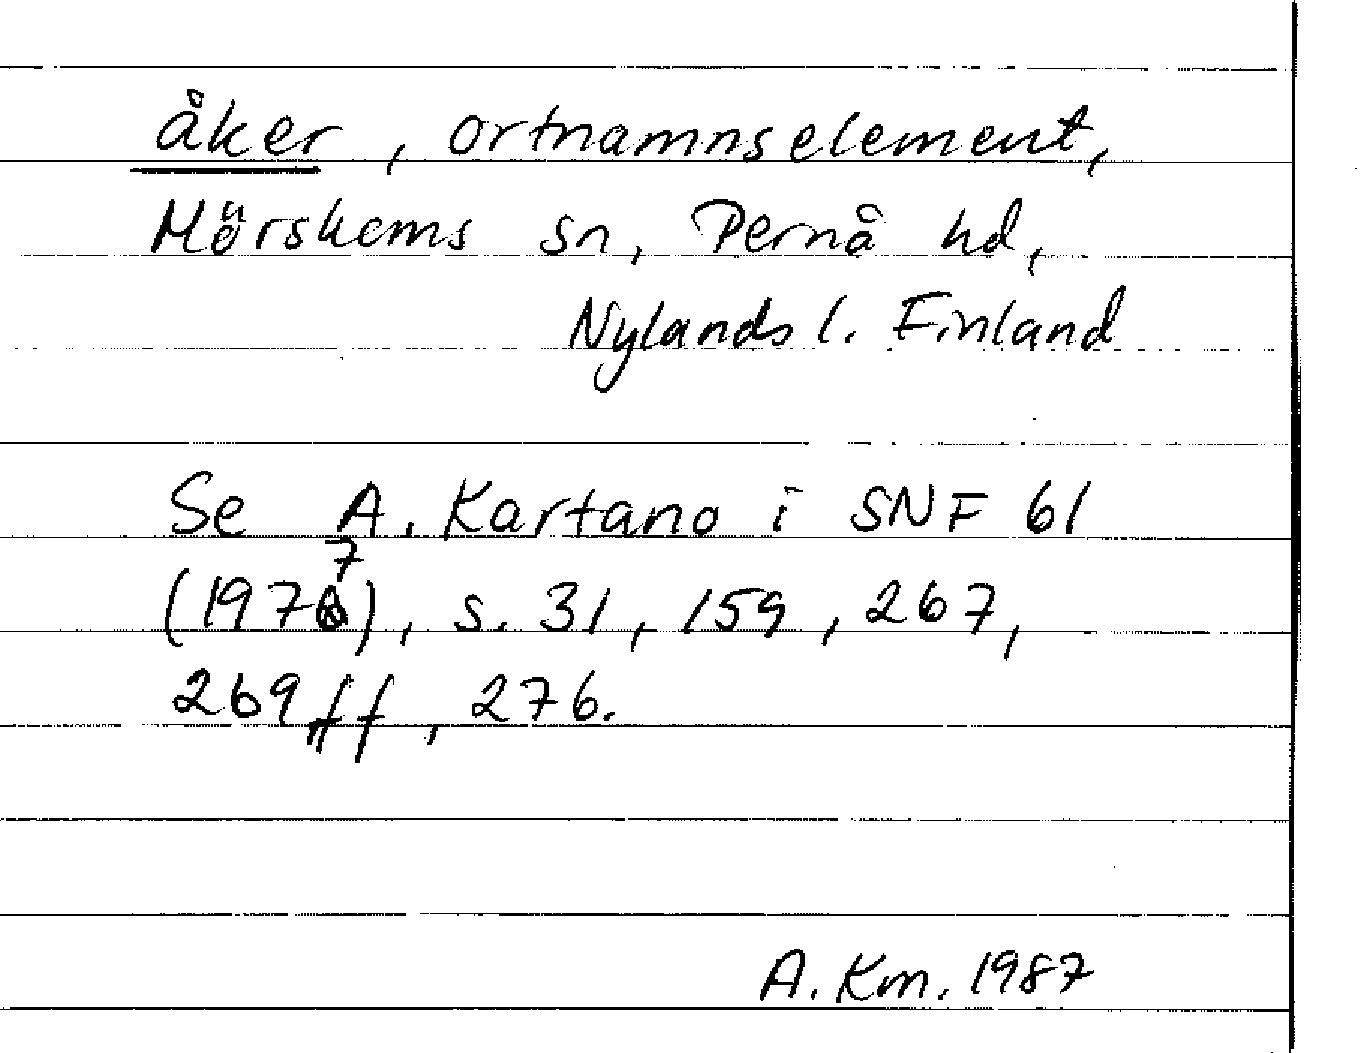 åker, ortnamnselement,
Mörskoms sn, Pernå hd,
Nylands l. Finland
Se A. Kartano i SNF 61
(1977), s. 31, 159, 267,
269 ff, 276.
A. Km. 1987